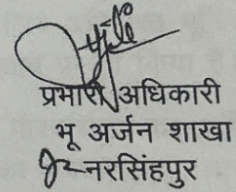 प्रभारी अधिकारी
भू अर्जन शाखा
नरसिंहपुर